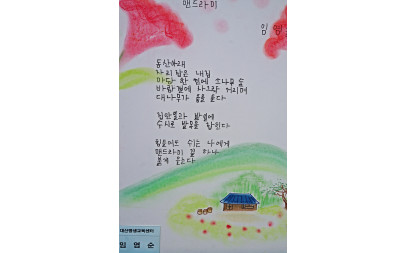 맨드라미
임영
동산아래
자리잡은 내집
마당 한 켠에 소나무 숲
바람결에 사그락 거리며
대나무가 춤을 춘다
집안일과 밭일에
수시로 발목을 잡힌다
힘들어도 쉬는 나에게
맨드라미 꽃 하나
붉게 웃는다
대산평생교육센터
임영순